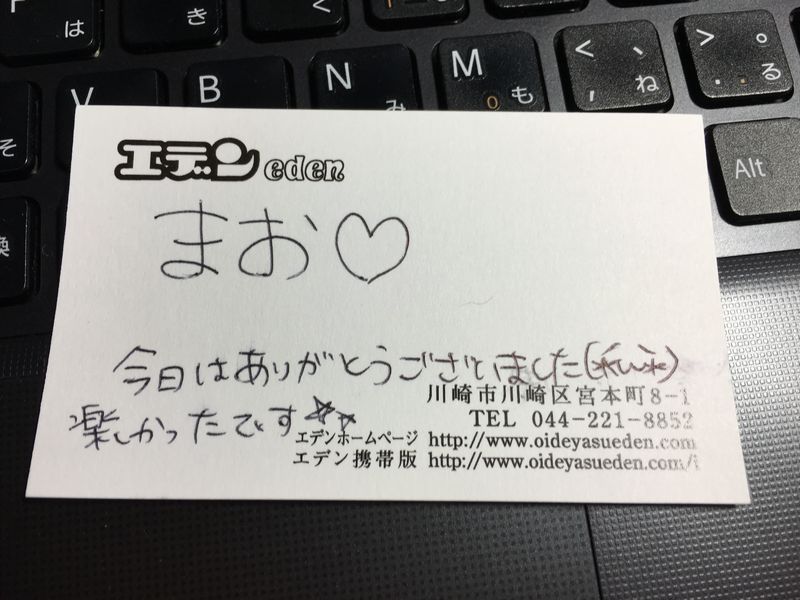 F は
き
<
V
B
N み
M 。 も
< 、 , ね
> 。 . る
そ
換
Alt
エデン eden
まお♡
今日はありがとうございました(*´ω`*)
川崎市川崎区宮本町8-1
楽しかったです☆
TEL 044-221-8852
エデンホームページ http://www.oideyasueden.com
エデン携帯版 http://www.oideyasueden.com/i